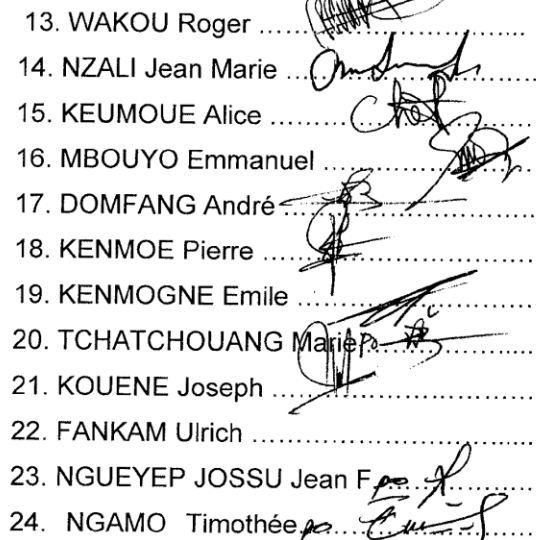 13. WAKOU Roger ...........................
14. NZALI Jean Marie ...........................
15. KEUMOUE Alice ...........................
16. MBOUYO Emmanuel ...........................
17. DOMFANG André ...........................
18. KENMOE Pierre ...........................
19. KENMOGNE Emile ...........................
20. TCHATCHOUANG Marie po ...........................
21. KOUENE Joseph ...........................
22. FANKAM Ulrich ...........................
23. NGUEYEP JOSSU Jean F. po ...........................
24. NGAMO Timothée po ...........................